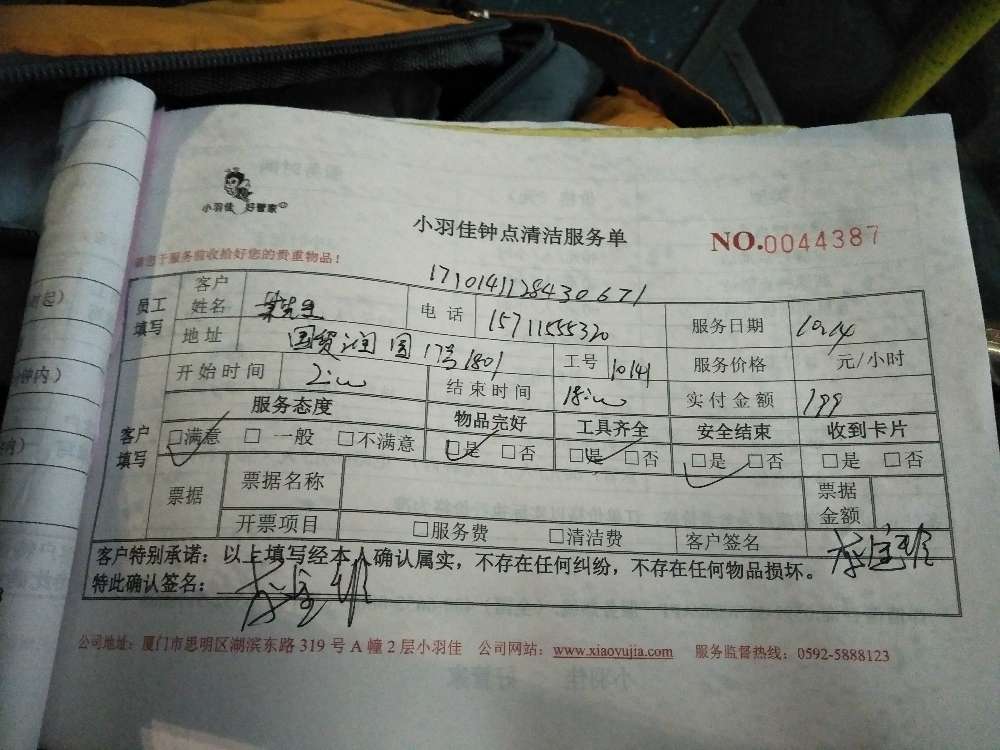 小羽佳 好管家
小羽佳钟点清洁服务单
NO.0044387
请您于服务验收拾好您的贵重物品！
171014112843067​1
员工填写 客户姓名 先生 电话 15711555320 服务日期 10.14
地址 国贸润园17号1801 工号 10141 服务价格 元/小时
开始时间 结束时间 实付金额 199
客户填写 服务态度 物品完好 工具齐全 安全结束 收到卡片
□满意 □一般 □不满意 □是 □否 □是 □否 □是 □否 □是 □否
票据 票据名称 票据金额
开票项目 □服务费 □清洁费 客户签名
客户特别承诺：以上填写经本人确认属实，不存在任何纠纷，不存在任何物品损坏。
特此确认签名：
公司地址：厦门市思明区湖滨东路319号A幢2层小羽佳 公司网站：www.xiaoyujia.com 服务监督热线：0592-5888123